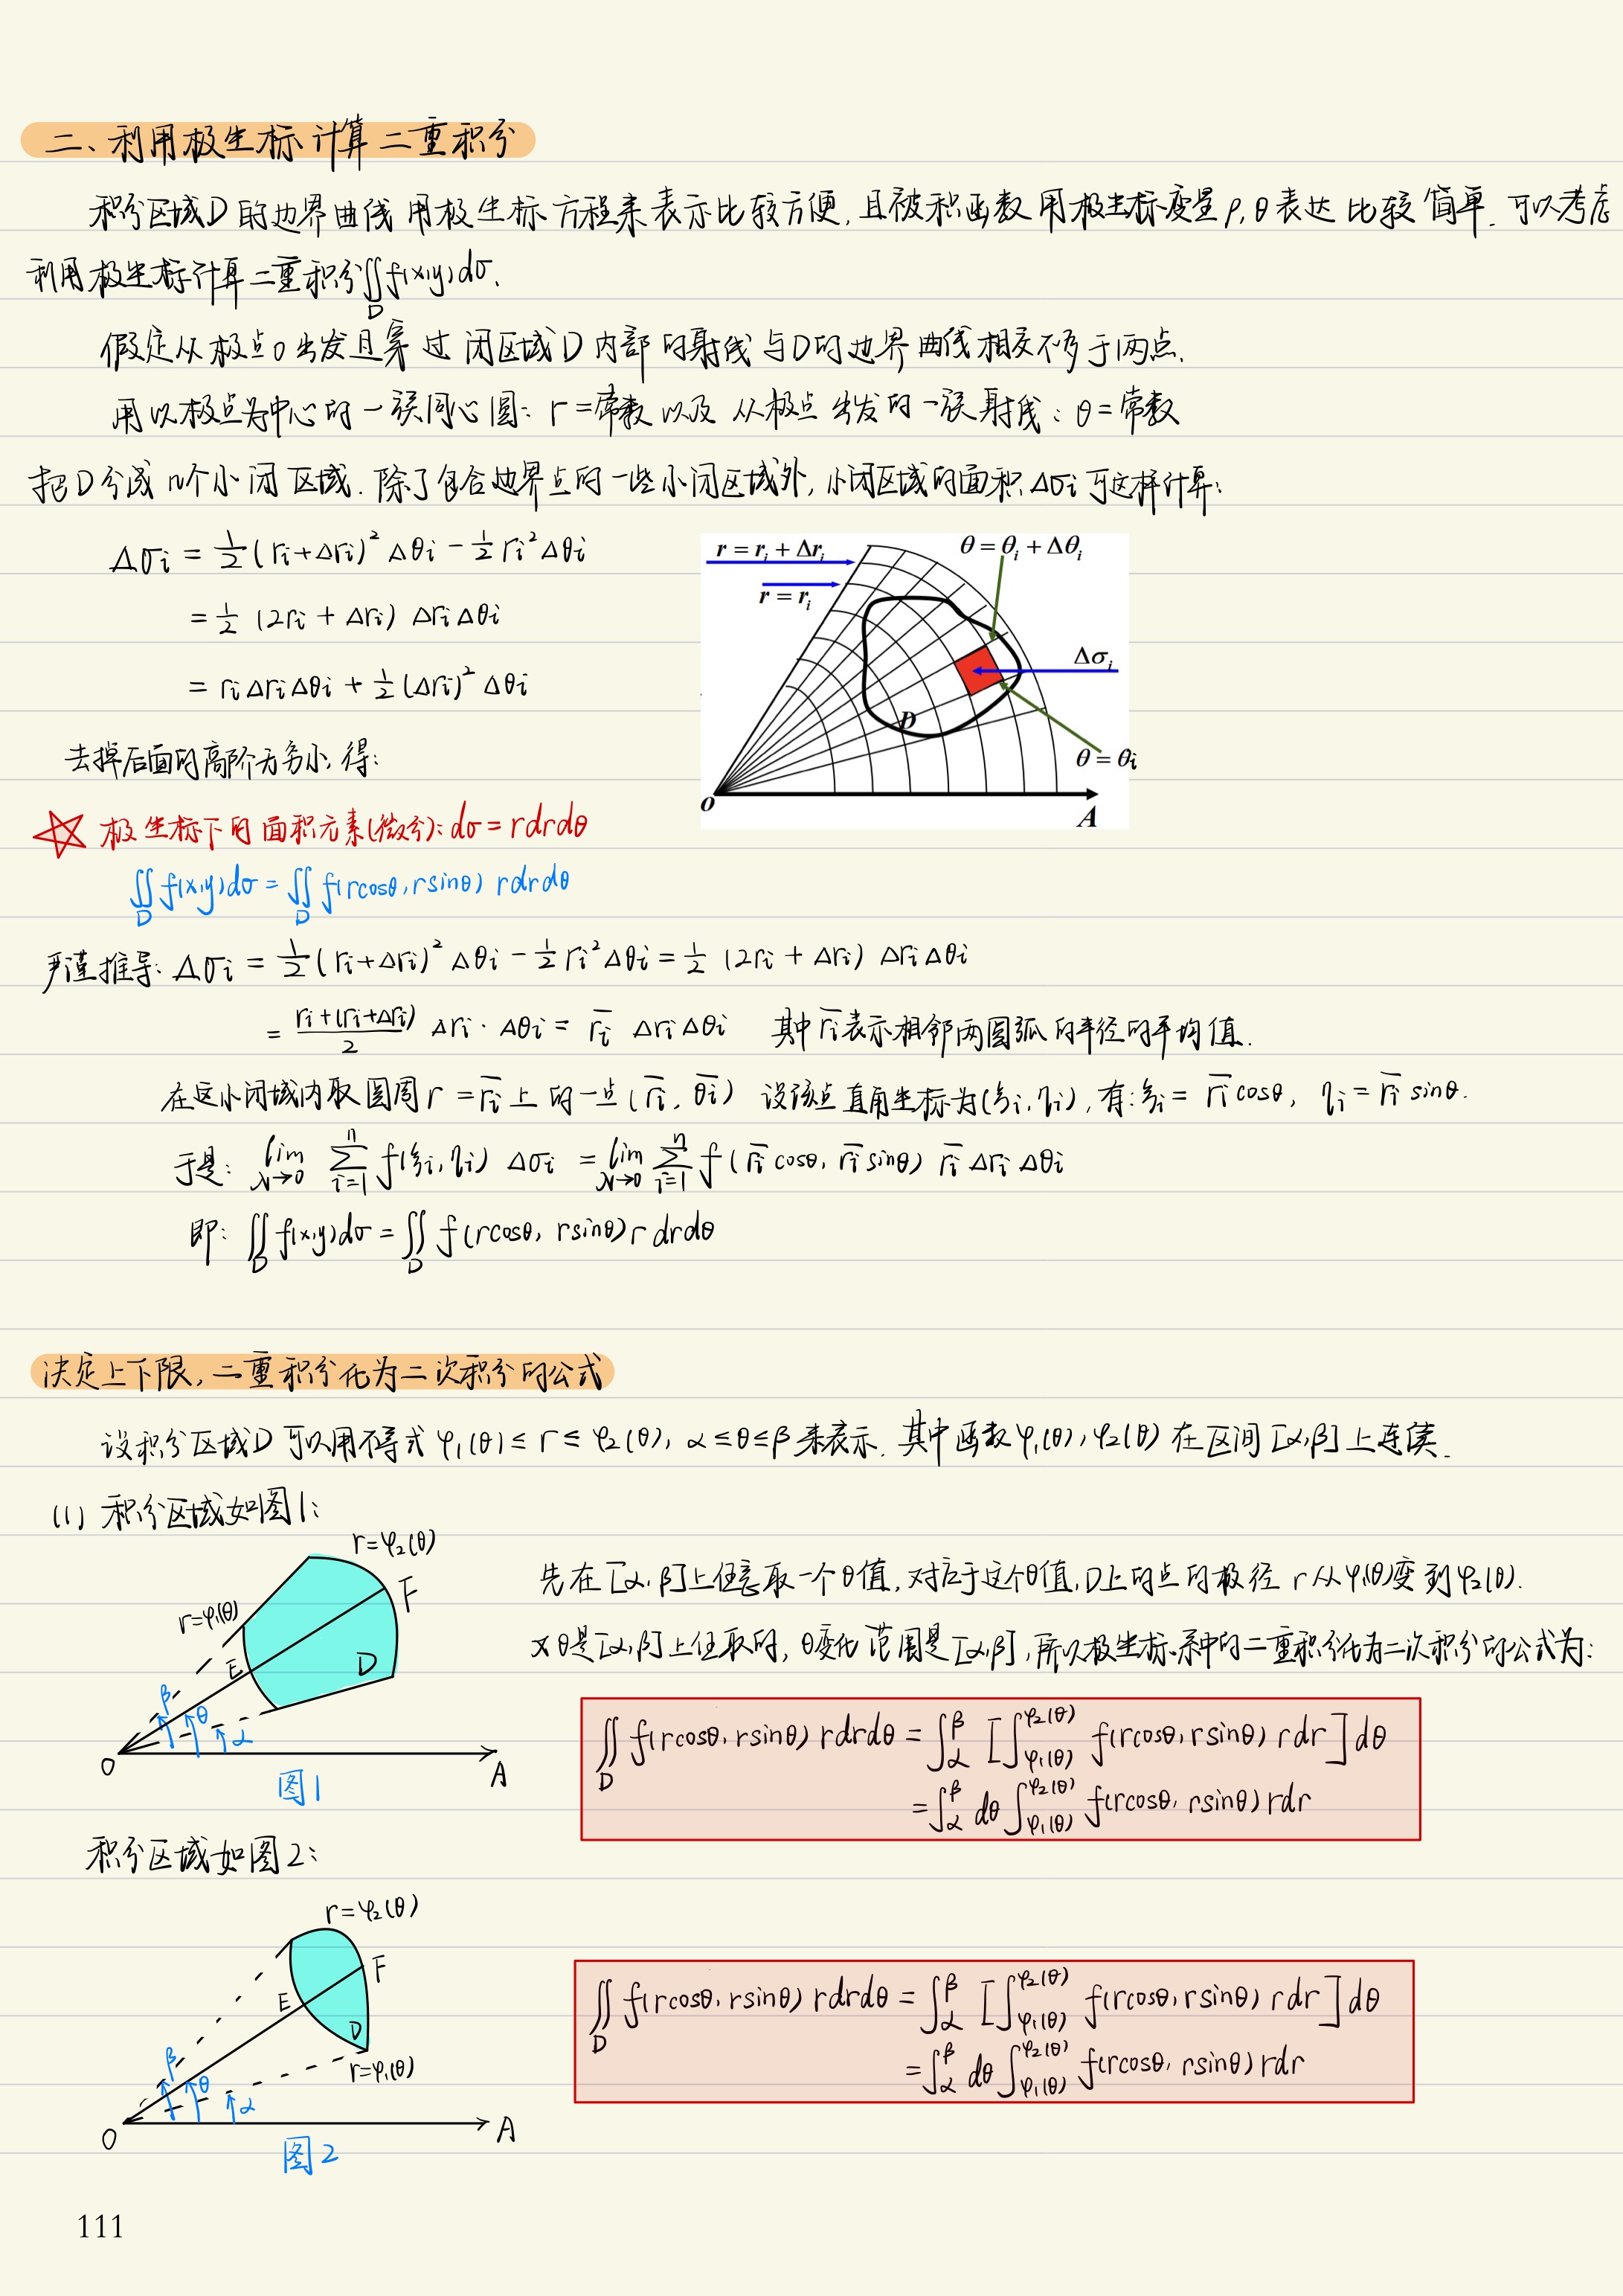 二、利用极坐标计算二重积分
积分区域D的边界曲线用极坐标方程来表示比较方便,且被积函数用极坐标变量ρ,θ表达比较简单.可以考虑
利用极坐标计算二重积分∬_D f(x,y)dσ.
假定从极点O出发且穿过闭区域D内部的射线与D的边界曲线相交不多于两点.
用以极点为中心的一族同心圆: r=常数以及从极点出发的一族射线: θ=常数
把D分成n个小闭区域.除了包含边界点的一些小闭区域外,小闭区域的面积Δσi可这样计算:
Δσi = 1/2(ri+Δri)²Δθi - 1/2 ri²Δθi
= 1/2 (2ri + Δri) ΔriΔθi
= riΔriΔθi + 1/2 (Δri)² Δθi
r = ri + Δri
r = ri
θ = θi + Δθi
Δσi
D
θ = θi
o
A
去掉后面的高阶无穷小,得:
极坐标下的面积元素(微分): dσ = rdrdθ
∬_D f(x,y)dσ = ∬_D f(rcosθ,rsinθ) rdrdθ
严谨推导: Δσi = 1/2(ri+Δri)²Δθi - 1/2 ri²Δθi = 1/2 (2ri + Δri) ΔriΔθi
= (ri+(ri+Δri))/2 Δri·Δθi = r̅i ΔriΔθi 其中r̅i表示相邻两圆弧的半径的平均值.
在这小闭域内取圆周r = r̅i上的一点(r̅i, θ̅i) 设该点直角坐标为(ξi,ηi),有:ξi = r̅i cosθ, ηi = r̅i sinθ.
于是: lim_{λ→0} ∑_{i=1}^{n} f(ξi,ηi) Δσi = lim_{λ→0} ∑_{i=1}^{n} f(r̅i cosθ, r̅i sinθ) r̅i Δri Δθi
即: ∬_D f(x,y)dσ = ∬_D f(rcosθ, rsinθ) r drdθ
决定上下限,二重积分化为二次积分的公式
设积分区域D可以用不等式 φ₁(θ) ≤ r ≤ φ₂(θ), α≤θ≤β来表示.其中函数φ₁(θ),φ₂(θ)在区间[α,β]上连续.
(1) 积分区域如图1:
r=φ₂(θ)
F
r=φ₁(θ)
E
D
β
θ
α
O
A
图1
先在[α,β]上任意取一个θ值,对应于这个θ值,D上的点的极径r从φ₁(θ)变到φ₂(θ).
又θ是[α,β]上任取的,θ变化范围是[α,β],所以极坐标系中的二重积分化为二次积分的公式为:
∬_D f(rcosθ,rsinθ) rdrdθ = ∫_α^β [∫_{φ₁(θ)}^{φ₂(θ)} f(rcosθ,rsinθ) rdr] dθ
= ∫_α^β dθ ∫_{φ₁(θ)}^{φ₂(θ)} f(rcosθ, rsinθ) rdr
积分区域如图2:
r=φ₂(θ)
F
E
D
r=φ₁(θ)
β
θ
α
O
A
图2
∬_D f(rcosθ,rsinθ) rdrdθ = ∫_α^β [∫_{φ₁(θ)}^{φ₂(θ)} f(rcosθ,rsinθ) rdr] dθ
= ∫_α^β dθ ∫_{φ₁(θ)}^{φ₂(θ)} f(rcosθ, rsinθ) rdr
111